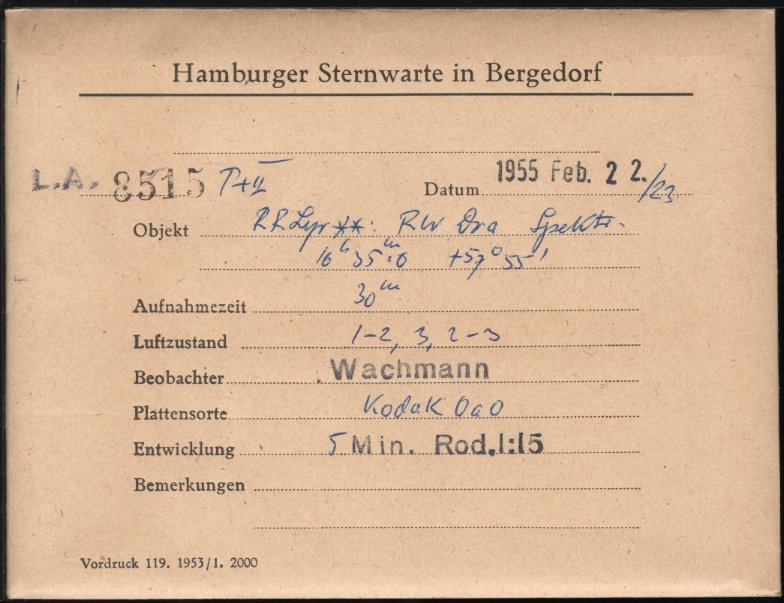 Hamburger Sternwarte in Bergedorf
L.A. 8515 P+II Datum 1955 Feb. 22./23
Objekt RR Lyr **: RW Dra Spektr.
16h 35m.0 +57° 55'
Aufnahmezeit 30m
Luftzustand 1-2, 3, 2-3
Beobachter Wachmann
Plattensorte Kodak OaO
Entwicklung 5 Min. Rod.1:15
Bemerkungen
Vordruck 119. 1953/1. 2000